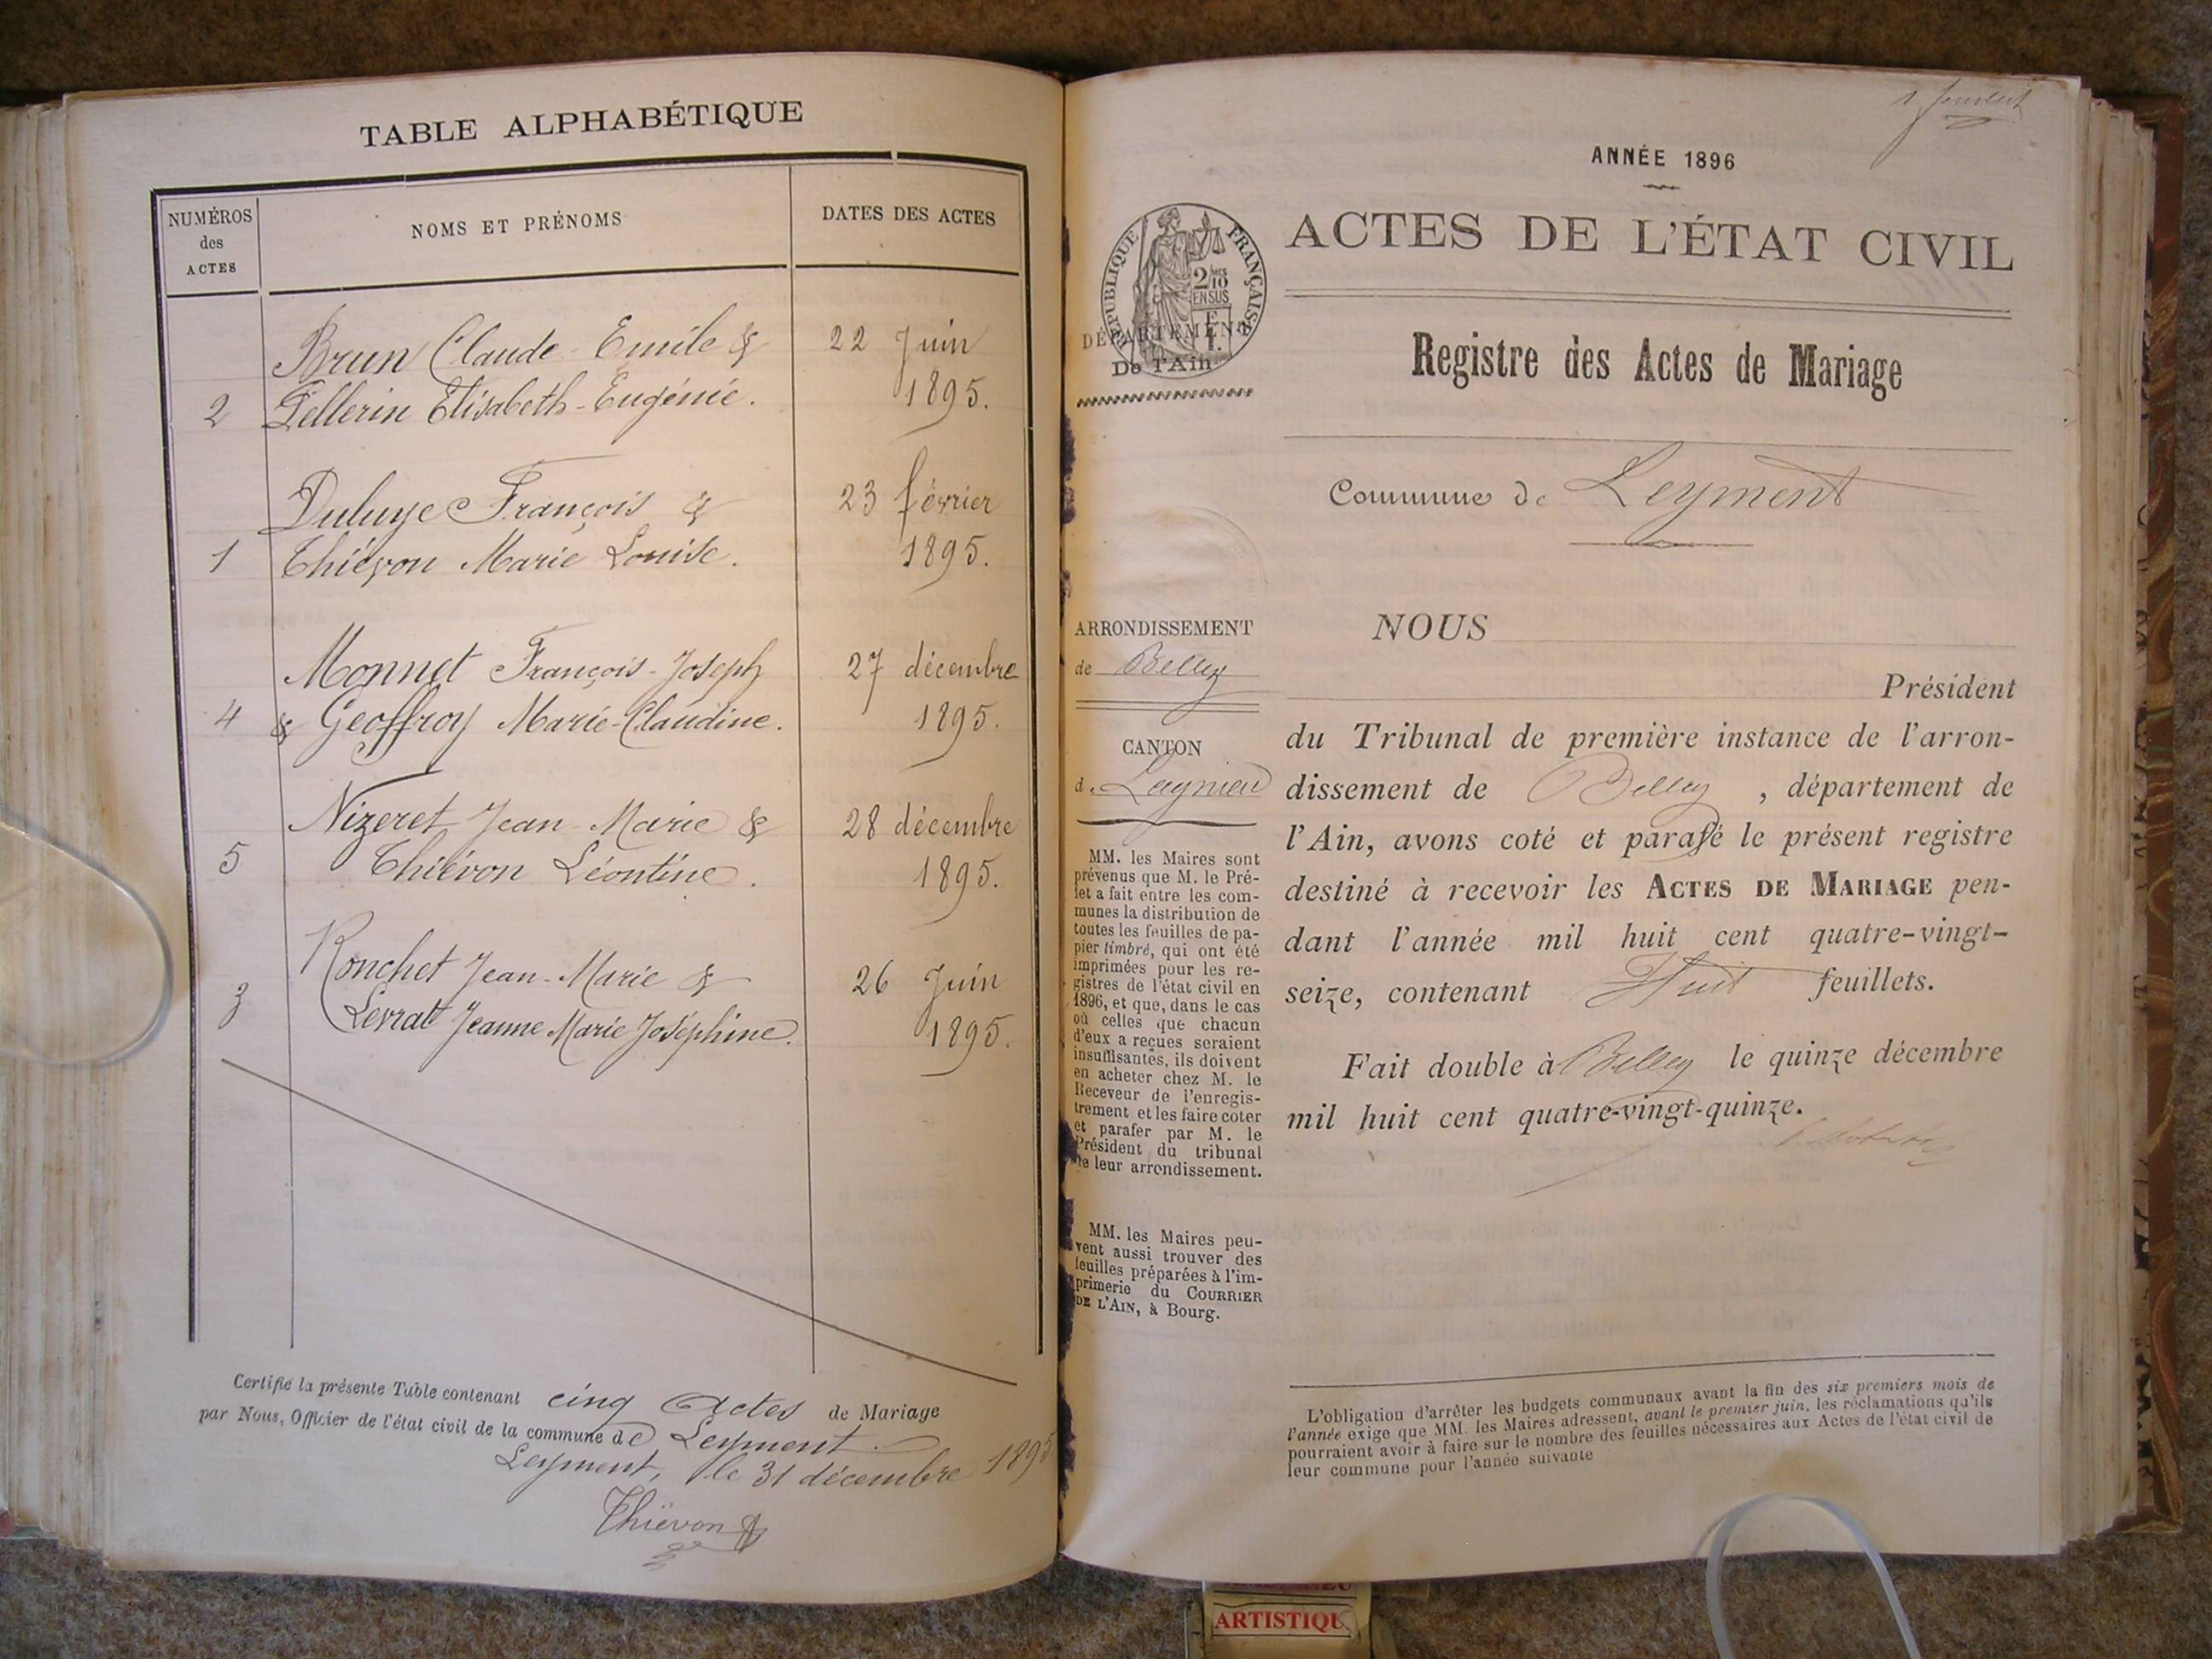 TABLE ALPHABÉTIQUE
NUMÉROS
des
ACTES
NOMS ET PRÉNOMS
DATES DES ACTES
Brun Claude-Emile & 22 Juin
2 Pellerin Elisabeth-Eugénie. 1895.
Duluye François & 23 février
1 Thiévon Marie Louise. 1895.
Monnet François-Joseph 27 décembre
4 & Geoffroy Marie-Claudine. 1895.
Nizeret Jean-Marie & 28 décembre
5 Thiévon Léontine. 1895.
Ronchet Jean-Marie & 26 Juin
3 Levrat Jeanne Marie Joséphine. 1895.
Certifié la présente Table contenant cinq Actes de Mariage
par Nous, Officier de l'état civil de la commune de Leyment.
Leyment, le 31 décembre 1895
Thiévon
ANNÉE 1896
RÉPUBLIQUE FRANÇAISE
2/10
EN SUS
DÉPARTEMENT
De l'Ain
ACTES DE L'ÉTAT CIVIL
Registre des Actes de Mariage
Commune de Leyment
ARRONDISSEMENT
de Belley
CANTON
d. Lagnieu
MM. les Maires sont
prévenus que M. le Pré-
fet a fait entre les com-
munes la distribution de
toutes les feuilles de pa-
pier timbré, qui ont été
imprimées pour les re-
gistres de l'état civil en
1896, et que, dans le cas
où celles que chacun
d'eux a reçues seraient
insuffisantes, ils doivent
en acheter chez M. le
Receveur de l'enregis-
trement et les faire coter
et parafer par M. le
Président du tribunal
de leur arrondissement.
MM. les Maires peu-
vent aussi trouver des
feuilles préparées à l'im-
primerie du COURRIER
DE L'AIN, à Bourg.
NOUS
Président
du Tribunal de première instance de l'arron-
dissement de Belley, département de
l'Ain, avons coté et parafé le présent registre
destiné à recevoir les ACTES DE MARIAGE pen-
dant l'année mil huit cent quatre-vingt-
seize, contenant Huit feuillets.
Fait double à Belley le quinze décembre
mil huit cent quatre-vingt-quinze.
L'obligation d'arrêter les budgets communaux avant la fin des six premiers mois de
l'année exige que MM. les Maires adressent, avant le premier juin, les réclamations qu'ils
pourraient avoir à faire sur le nombre des feuilles nécessaires aux Actes de l'état civil de
leur commune pour l'année suivante
ARTISTIQU